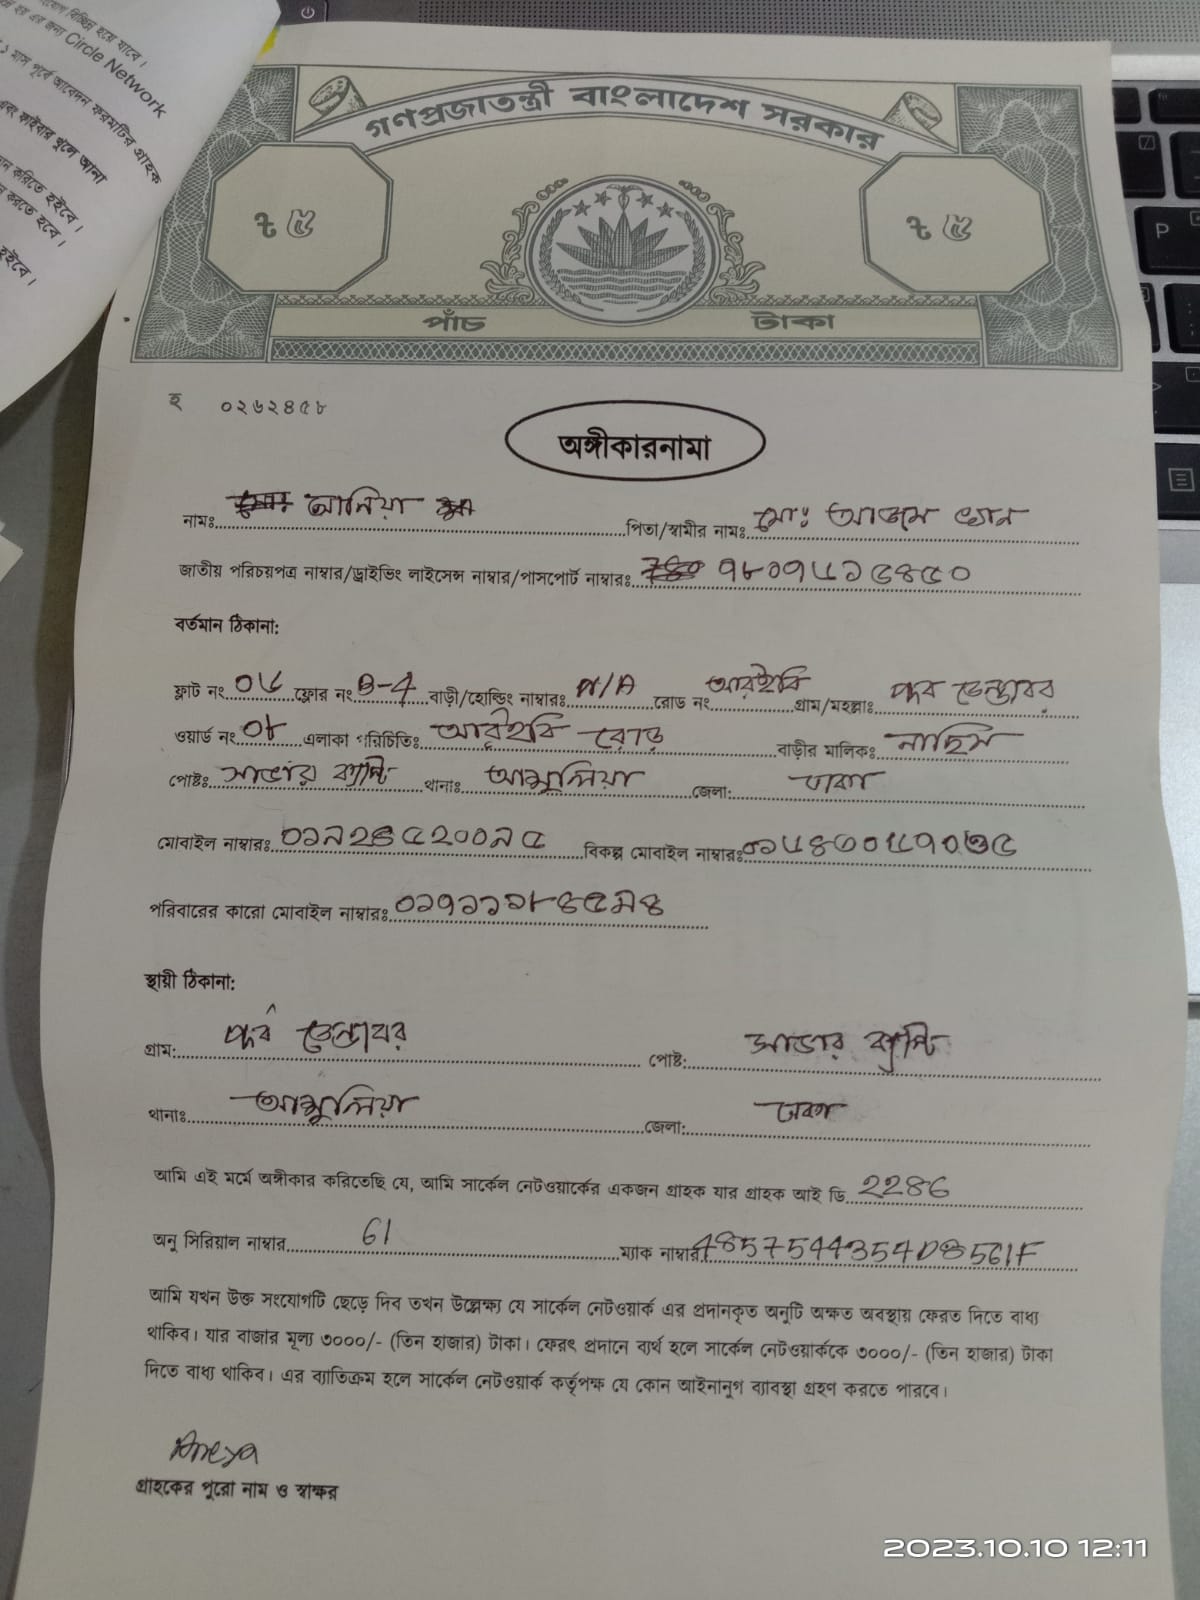 হয় এর জন্য Circle Network
১ মাস পূর্বে আবেদন ফরমটির গ্রাহক
এবং ফাইবার খুলে আনা
করিতে হইবে।
করতে হবে।
হইবে।
গণপ্রজাতন্ত্রী বাংলাদেশ সরকার
৳ ৫ ৳ ৫
পাঁচ টাকা
হ ০২৬২৪৫৮
অঙ্গীকারনামা
নামঃ আনিয়া পিতা/স্বামীর নামঃ মোঃ আজম
জাতীয় পরিচয়পত্র নাম্বার/ড্রাইভিং লাইসেন্স নাম্বার/পাসপোর্ট নাম্বারঃ
বর্তমান ঠিকানা:
ফ্লাট নং ০৬ ফ্লোর নং B-4 বাড়ী/হোল্ডিং নাম্বারঃ N/A রোড নং আরইবি গ্রাম/মহল্লাঃ পূর্ব ডেন্ডাবর
ওয়ার্ড নং ০৮ এলাকা পরিচিতিঃ আরইবি রোড বাড়ীর মালিকঃ নাছিম
পোষ্টঃ সাভার ক্যান্ট থানাঃ আশুলিয়া জেলা: ঢাকা
মোবাইল নাম্বারঃ বিকল্প মোবাইল নাম্বারঃ
পরিবারের কারো মোবাইল নাম্বারঃ
স্থায়ী ঠিকানা:
গ্রাম: পূর্ব ডেন্ডাবর পোষ্ট: সাভার ক্যান্ট
থানাঃ আশুলিয়া জেলা: ঢাকা
আমি এই মর্মে অঙ্গীকার করিতেছি যে, আমি সার্কেল নেটওয়ার্কের একজন গ্রাহক যার গ্রাহক আই ডি 2286
অনু সিরিয়াল নাম্বার 61 ম্যাক নাম্বার
আমি যখন উক্ত সংযোগটি ছেড়ে দিব তখন উল্লেক্ষ্য যে সার্কেল নেটওয়ার্ক এর প্রদানকৃত অনুটি অক্ষত অবস্থায় ফেরত দিতে বাধ্য
থাকিব। যার বাজার মূল্য ৩০০০/- (তিন হাজার) টাকা। ফেরৎ প্রদানে ব্যর্থ হলে সার্কেল নেটওয়ার্ককে ৩০০০/- (তিন হাজার) টাকা
দিতে বাধ্য থাকিব। এর ব্যাতিক্রম হলে সার্কেল নেটওয়ার্ক কর্তৃপক্ষ যে কোন আইনানুগ ব্যাবস্থা গ্রহণ করতে পারবে।
Aneya
গ্রাহকের পুরো নাম ও স্বাক্ষর
2023.10.10 12:11